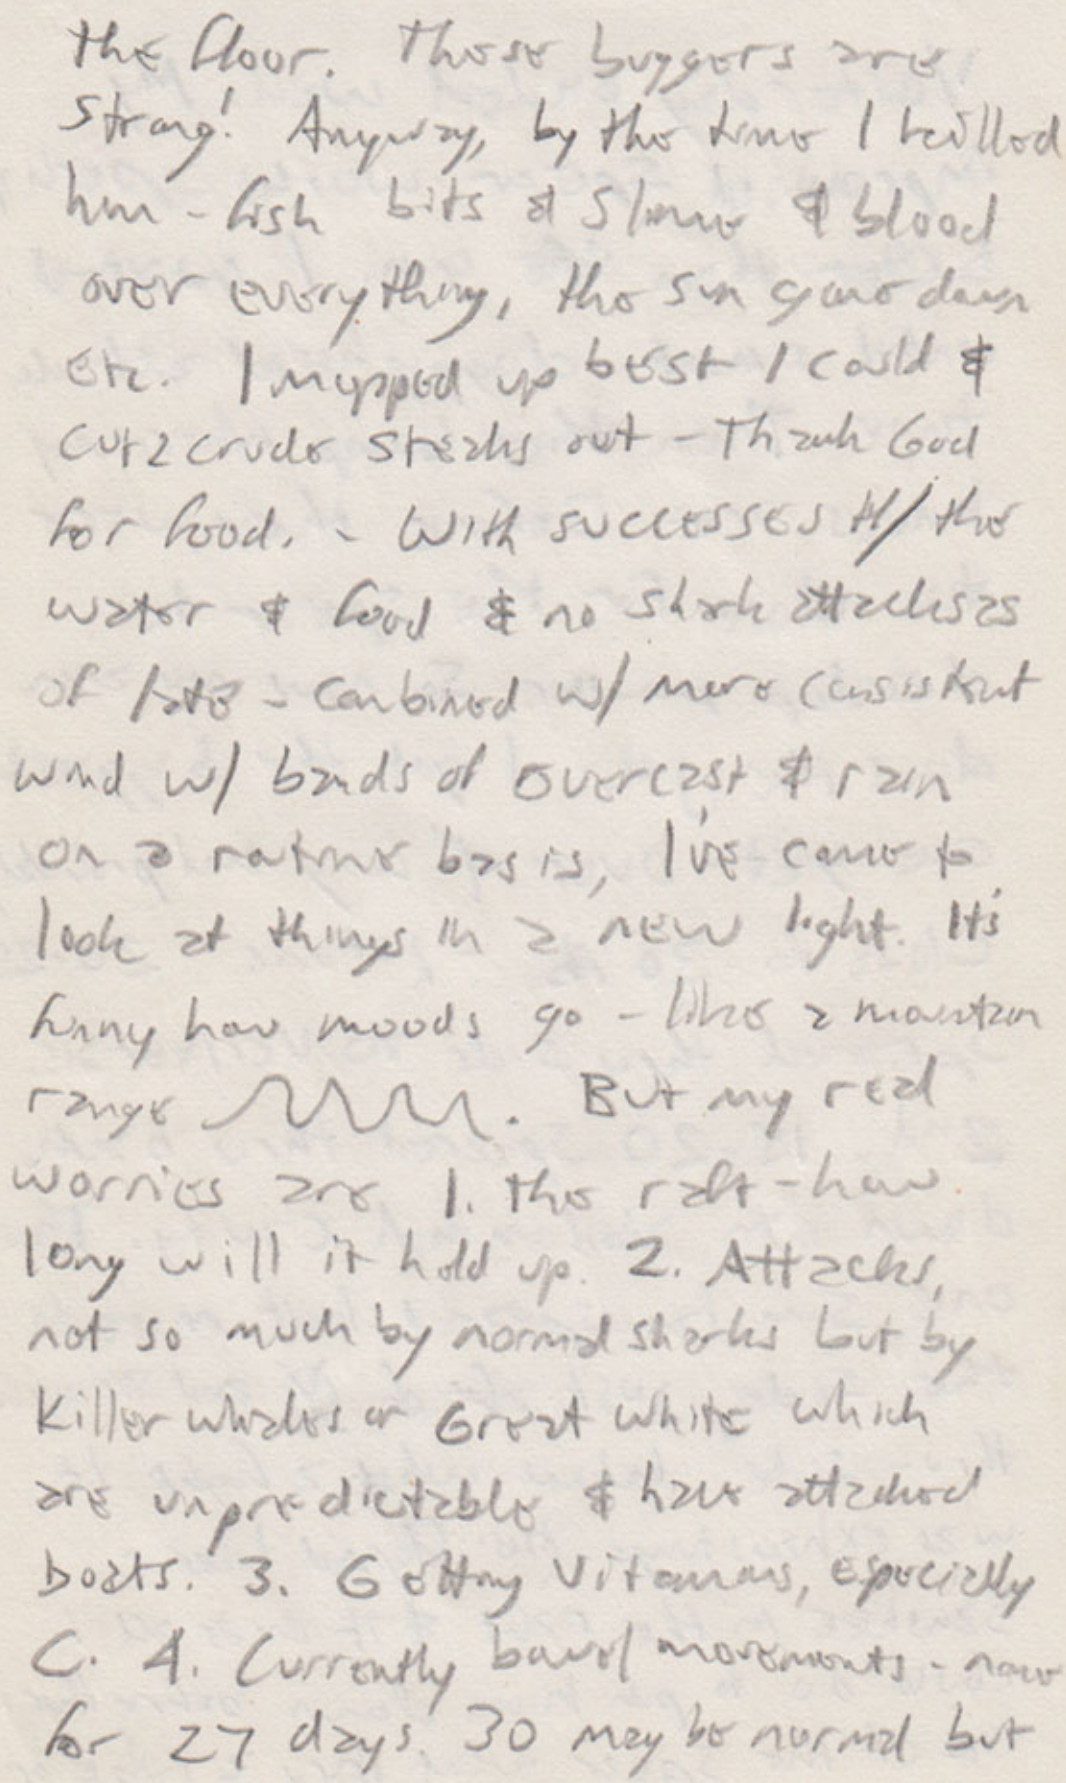 the floor. These buggers are
strong! Anyway, by the time I killed
him - fish bits & slime & blood
over everything, the sun gone down
etc. I mopped up best I could &
cut 2 crude steaks out - Thank God
for food. - With successes w/ the
water & food & no shark attacks as
of late - combined w/ more consistent
wind w/ bands of overcast & rain
on a routine basis, I've come to
look at things in a new light. It's
funny how moods go - like a mountain
range. But my real
worries are 1. the raft - how
long will it hold up. 2. Attacks,
not so much by normal sharks but by
Killer whales or Great White which
are unpredictable & have attacked
boats. 3. Getting Vitamins, especially
C. 4. Currently bowel movements - none
for 27 days. 30 may be normal but